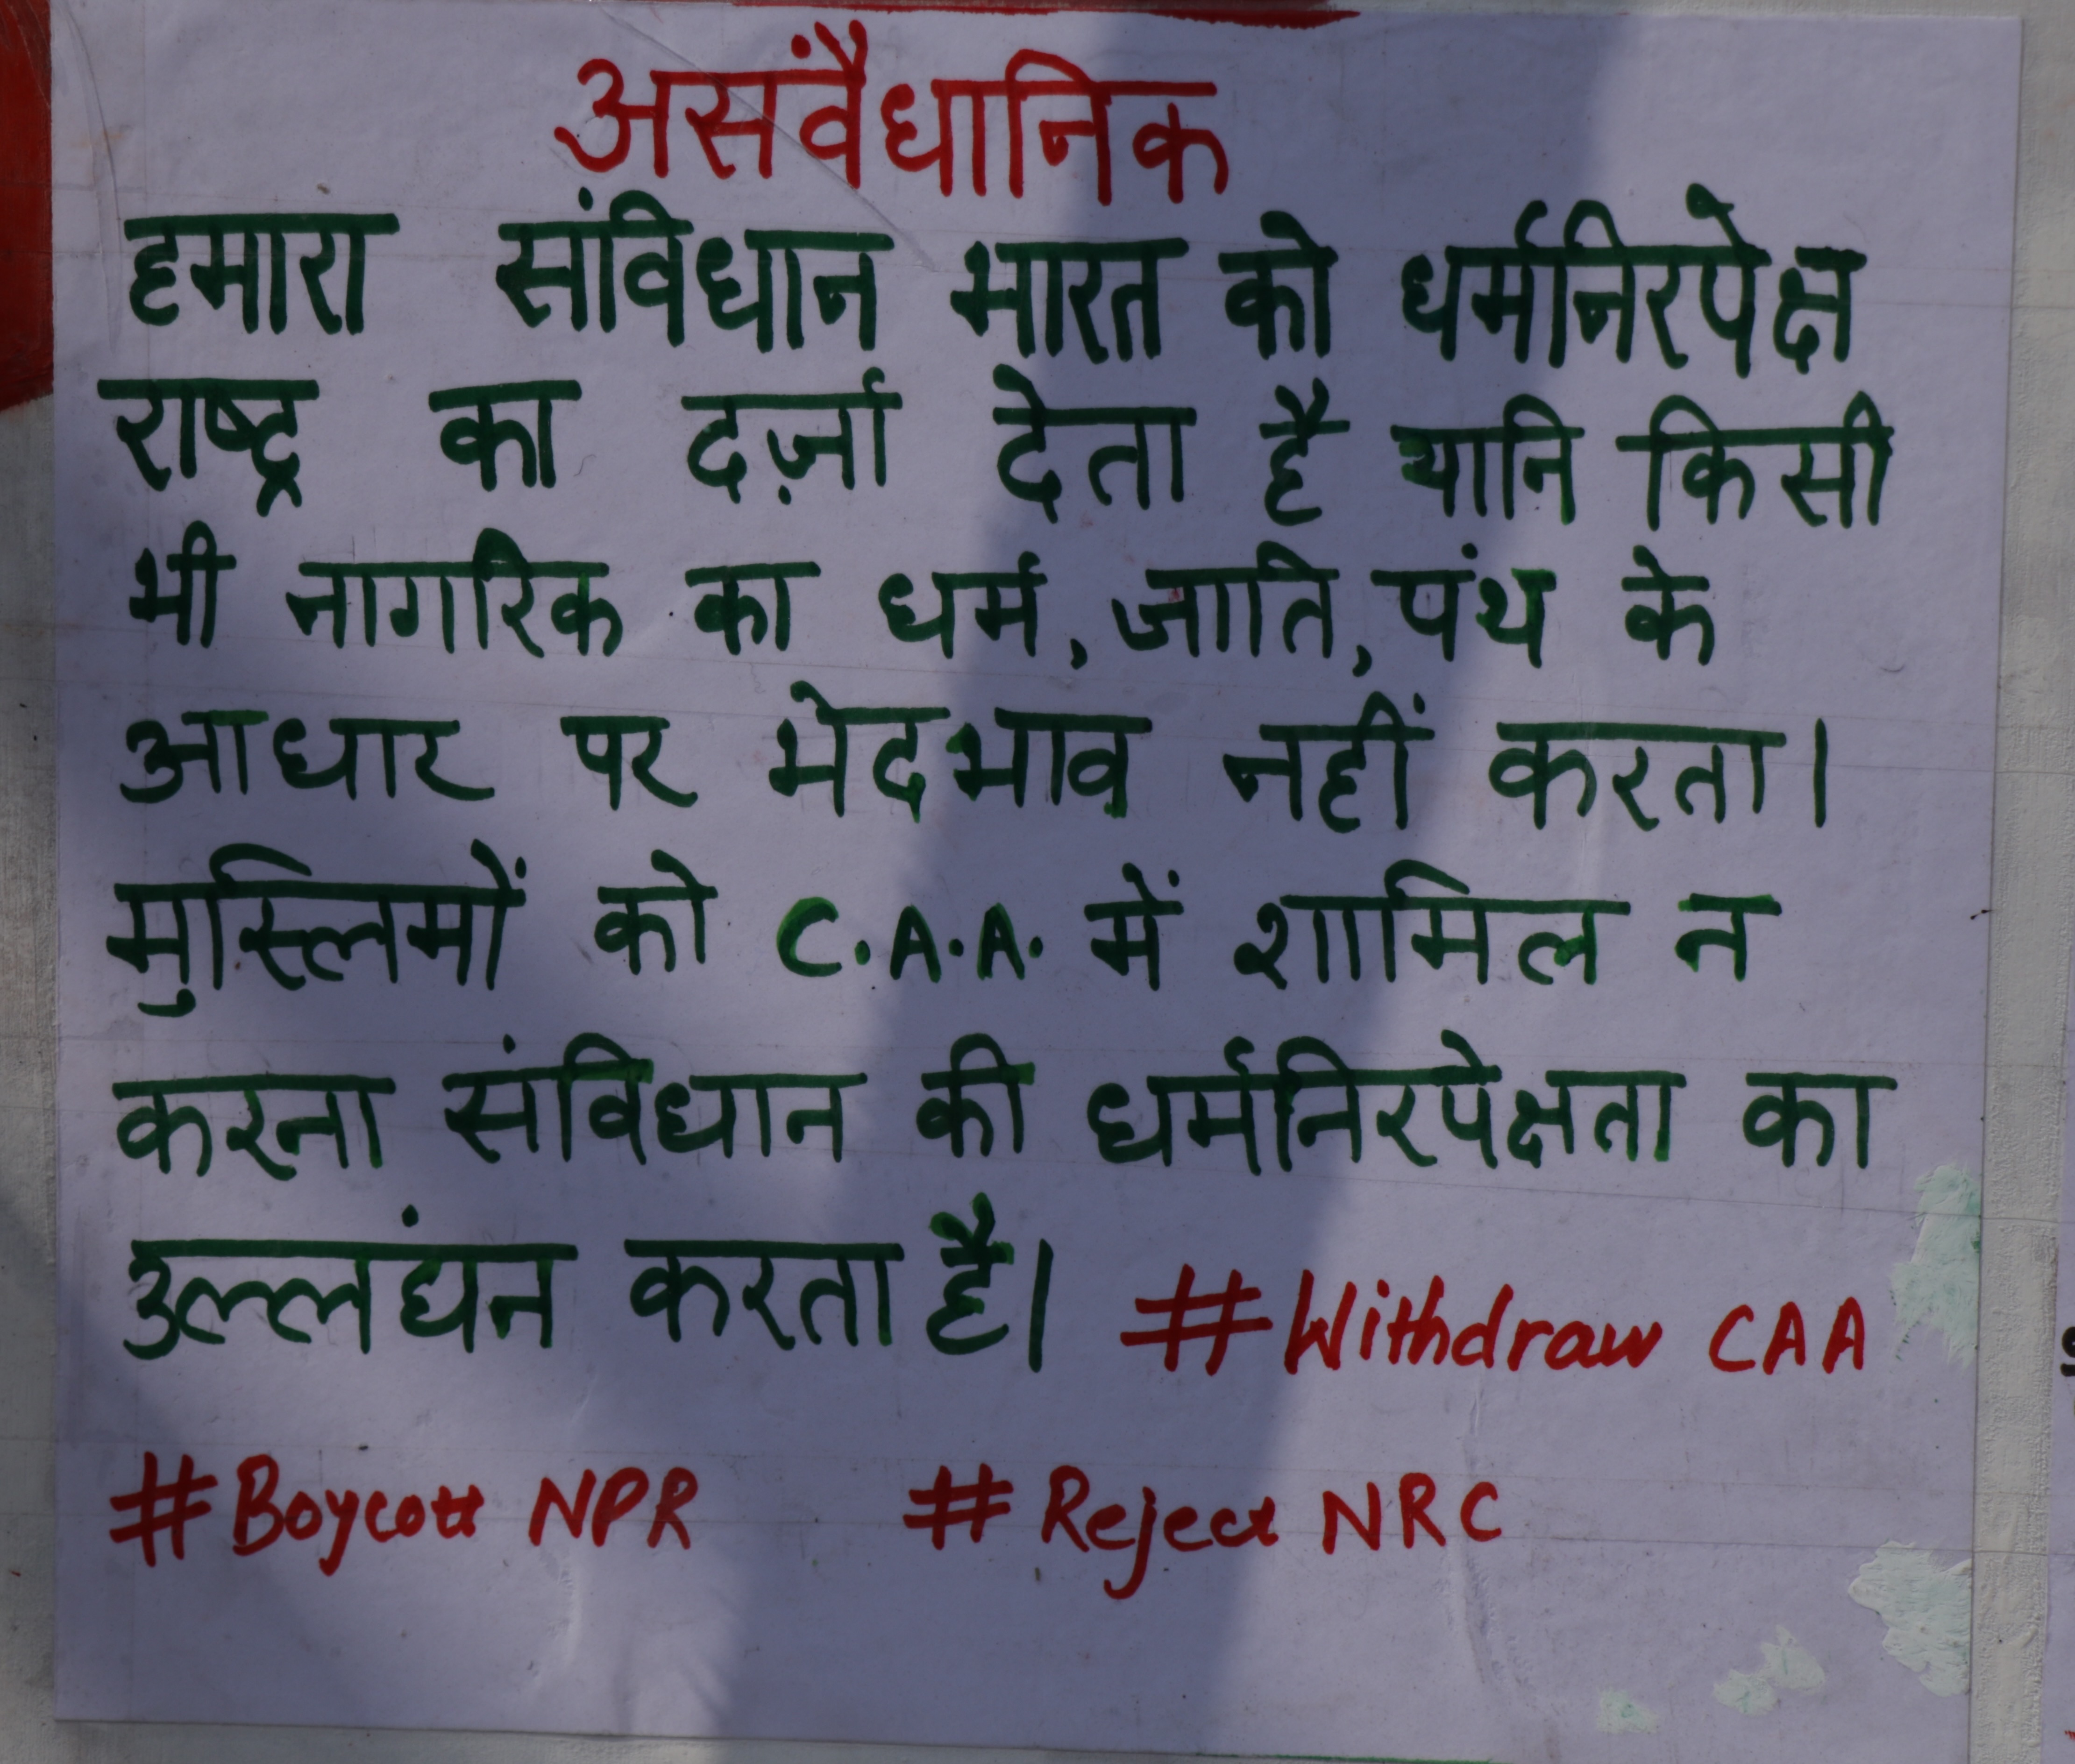 असंवैधानिक
हमारा संविधान भारत को धर्मनिरपेक्ष
राष्ट्र का दर्ज़ा देता है यानि किसी
भी नागरिक का धर्म, जाति, पंथ के
आधार पर भेदभाव नहीं करता।
मुस्लिमों को C.A.A. में शामिल न
करना संविधान की धर्मनिरपेक्षता का
उल्लंघन करता है। #Withdraw CAA
#Boycott NPR # Reject NRC